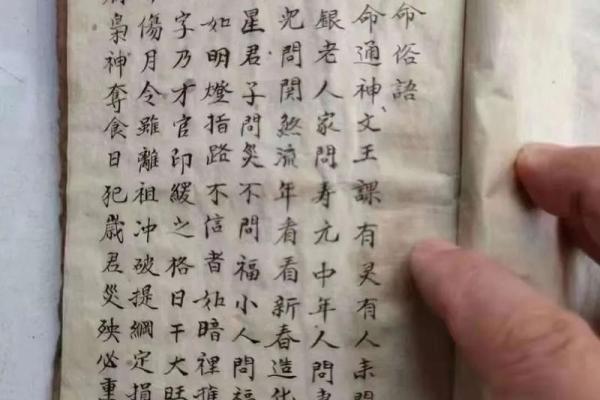 命俗語
命通神文王課有灵有人来問
銀老人家問寿元中年人問妻
兒問関煞流年看看新春造化
星君子問災不問福小人問福
如明燈指路不信者如暗裡推
字乃才官印綬之格日干大旺
傷月令雖離祖冲破提綱定損
梟神奪食日犯歲君災殃必重